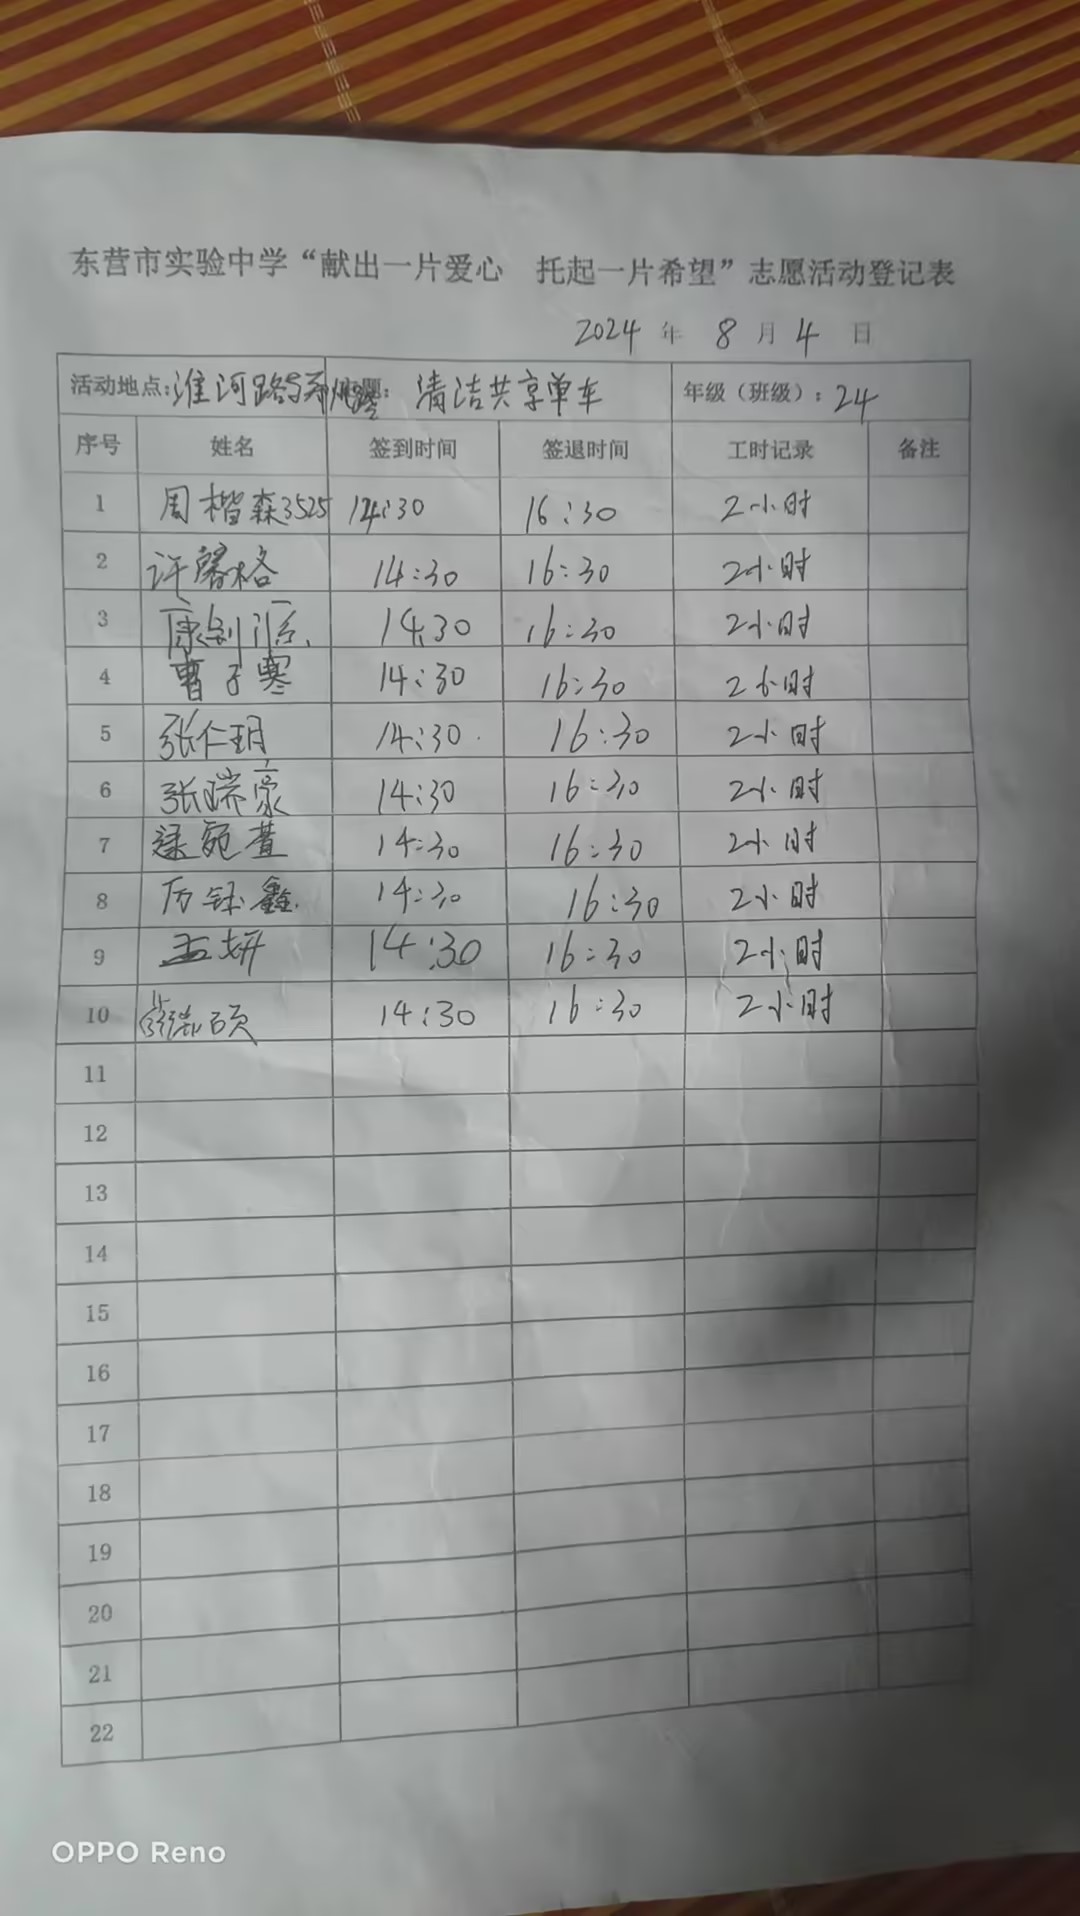 东营市实验中学“献出一片爱心 托起一片希望”志愿活动登记表
2024 年 8 月 4 日
活动地点:淮河路与 清洁共享单车 年级（班级）: 24
序号 姓名 签到时间 签退时间 工时记录 备注
1 周楷森3525 14:30 16:30 2小时
2 许馨格 14:30 16:30 2小时
3 康剑 14:30 16:30 2小时
4 曹子寒 14:30 16:30 2小时
5 张仁玥 14:30 16:30 2小时
6 张瑞豪 14:30 16:30 2小时
7 宛萱 14:30 16:30 2小时
8 厉钰鑫 14:30 16:30 2小时
9 孟妍 14:30 16:30 2小时
10 14:30 16:30 2小时
11
12
13
14
15
16
17
18
19
20
21
22
OPPO Reno